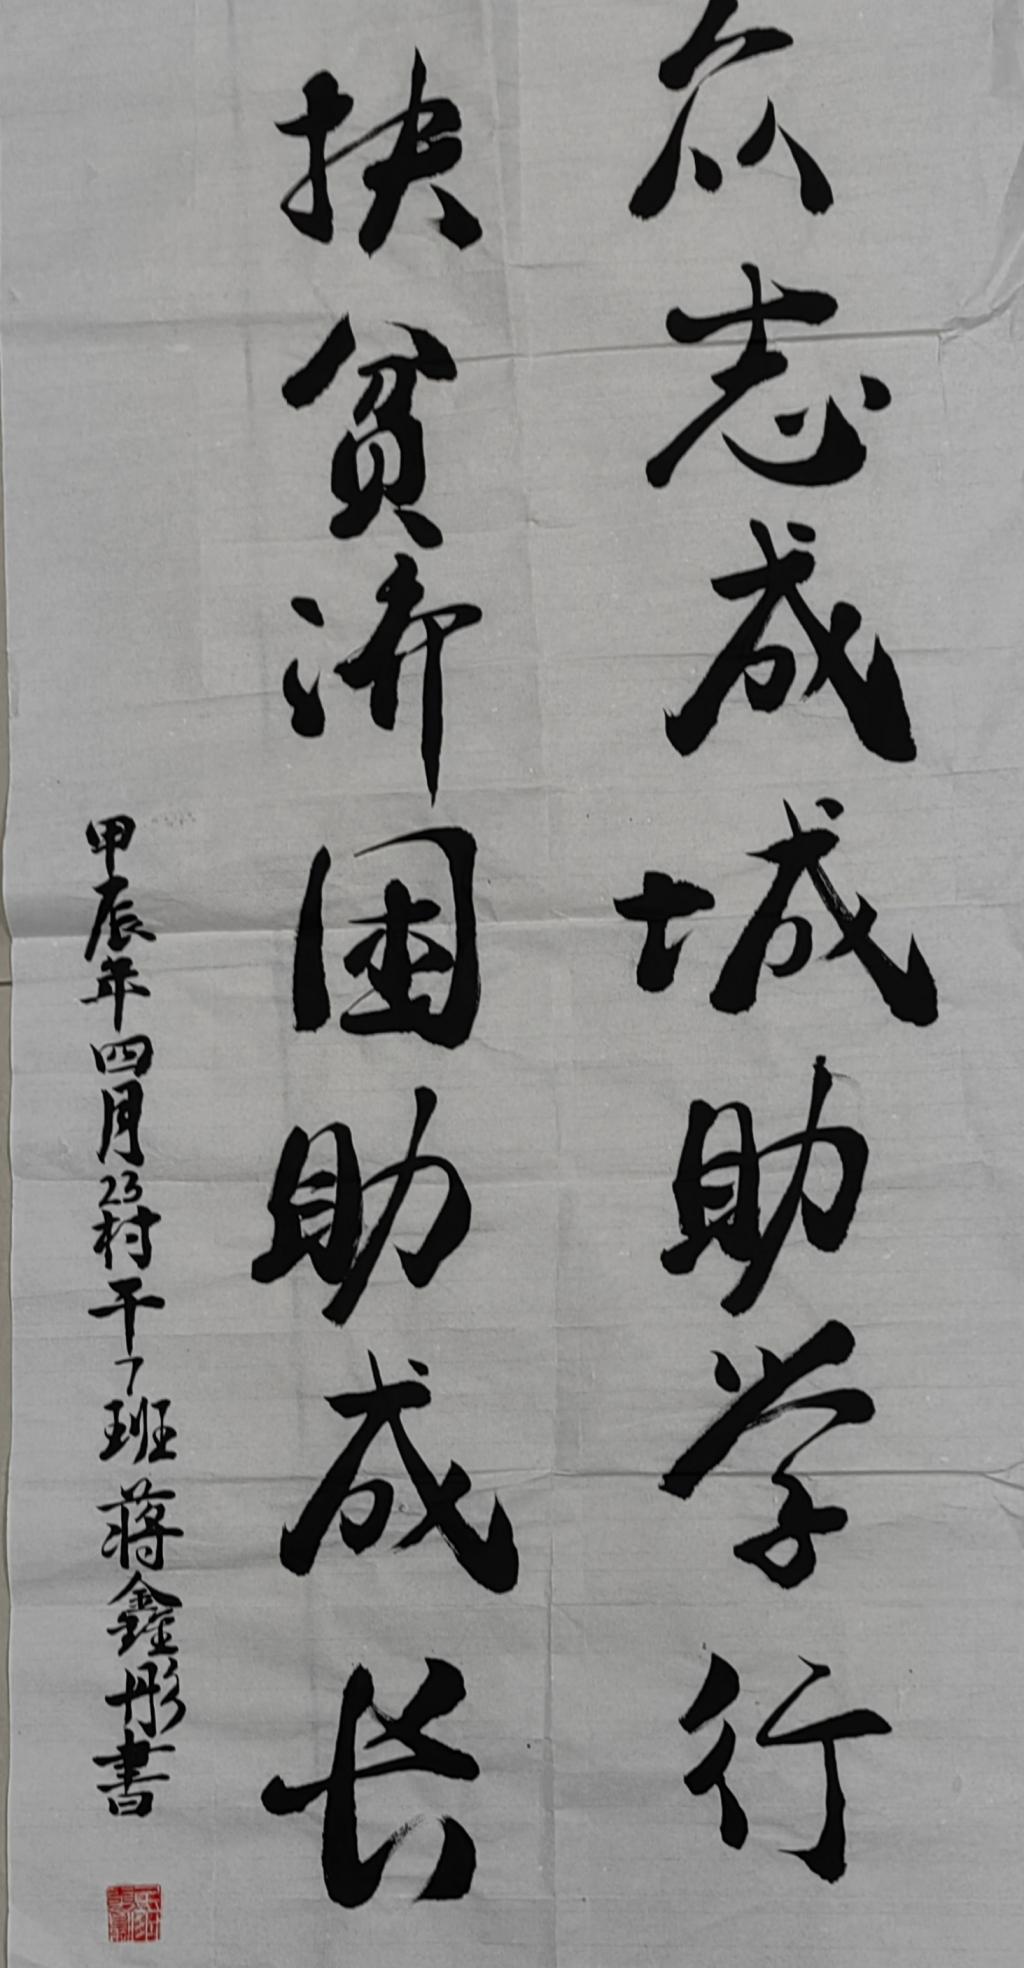 众志成城助学行
扶贫济困助成长
甲辰年四月23村干7班蒋鑫彤書